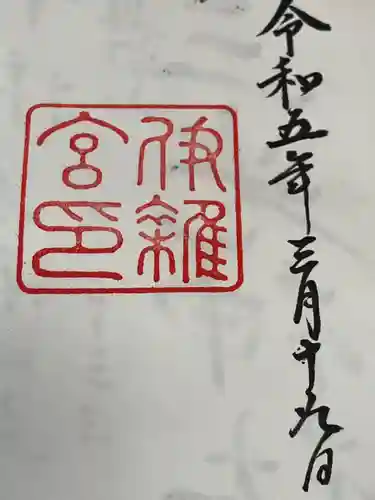 令和五年三月十九日
伊雑
宮印